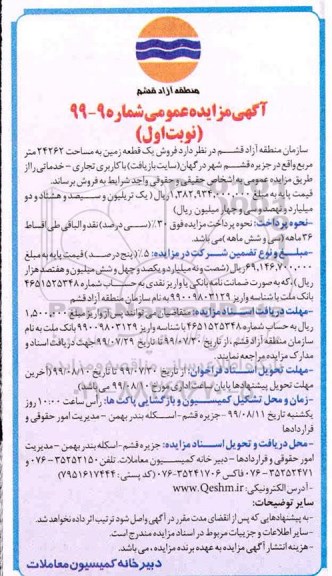 منطقه آزاد قشم
آگهی مزایده عمومی شماره ۹-۹۹
(نوبت اول)
سازمان منطقه آزاد قشم در نظر دارد فروش یک قطعه زمین به مساحت ۲۴۲۶۲ متر
مربع واقع در جزیره قشم شهر درگهان (سایت بازیافت) با کاربری تجاری - خدماتی را از
طریق مزایده عمومی به اشخاص حقیقی و حقوقی واجد شرایط به فروش برساند.
قیمت پایه به مبلغ ۱,۳۸۲,۹۳۴,۰۰۰,۰۰۰ ریال (یک تریلیون و سیصد و هشتاد و دو
میلیارد و نهصد و سی و چهار میلیون ریال)
-نحوه پرداخت: نحوه پرداخت مزایده فوق ۳۰٪ (سی درصد) نقد والباقی طی اقساط
۳۶ ماهه (سی و شش ماهه) می باشد.
-مبلغ و نوع تضمین شرکت در مزایده: ۵٪ (پنج درصد) قیمت پایه به مبلغ
۶۹,۱۴۶,۷۰۰,۰۰۰ ریال (شصت و نه میلیارد و یکصد و چهل و شش میلیون و هفتصد هزار
ریال)، که به صورت ضمانت نامه بانکی یا واریز نقدی به حساب شماره ۴۶۵۱۵۲۵۳۴۸
بانک ملت با شناسه واریز ۹۹۰۰۹۸۰۳۱۲۹ به نام سازمان منطقه آزاد قشم
-مهلت دریافت اسناد مزایده: متقاضیان می توانند پس از واریز مبلغ ۱,۵۰۰,۰۰۰
ریال به حساب شماره ۴۶۵۱۵۲۵۳۴۸ با شناسه واریز ۹۹۰۰۹۸۰۳۱۲۹ بانک ملت به نام
سازمان منطقه آزاد قشم، از تاریخ ۹۹/۰۷/۲۰ تا تاریخ ۹۹/۰۷/۲۹ جهت دریافت اسناد و
مدارک مزایده مراجعه نمایند.
-مهلت تحویل اسناد فراخوان: از تاریخ ۹۹/۰۷/۳۰ تا تاریخ ۹۹/۰۸/۱۰ (آخرین
مهلت تحویل پیشنهادها پایان ساعت اداری مورخ ۹۹/۰۸/۱۰ می باشد)
-زمان و محل تشکیل کمیسیون و بازگشایی پاکت ها: رأس ساعت ۱۰:۰۰ روز
یکشنبه تاریخ ۹۹/۰۸/۱۱ - جزیره قشم - اسکله بندر بهمن - مدیریت امور حقوقی و
قراردادها
-محل دریافت و تحویل اسناد مزایده: جزیره قشم - اسکله بندر بهمن - مدیریت
امور حقوقی و قراردادها - دبیر خانه کمیسیون معاملات. تلفن ۳۵۲۵۲۱۵۰-۰۷۶ و
۳۵۲۵۲۴۷۱-۰۷۶ فاکس ۳۵۲۴۱۷۰۶-۰۷۶ (کد پستی: ۷۹۵۱۶۱۷۴۴۴)
-آدرس الکترونیکی: www.Qeshm.ir
سایر توضیحات:
-به پیشنهادهایی که پس از انقضای مدت مقرر در آگهی واصل شود ترتیب اثر داده نخواهد شد.
-سایر اطلاعات و جزییات مربوط در اسناد مزایده مندرج است.
-هزینه انتشار آگهی مزایده به عهده برنده مزایده، می باشد.
دبیر خانه کمیسیون معاملات